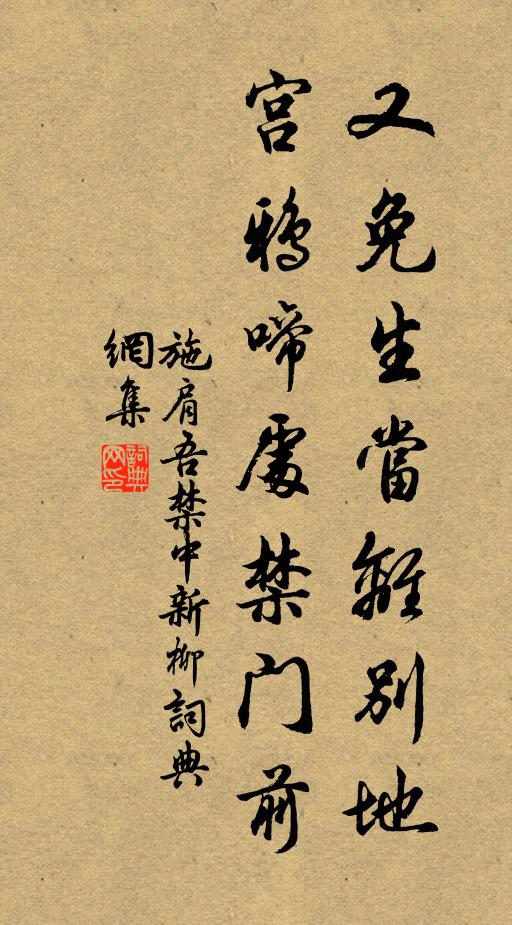 又免生當離別地
宮鴉啼處禁門前
施肩吾禁中新柳詞典
網集
詞典網印